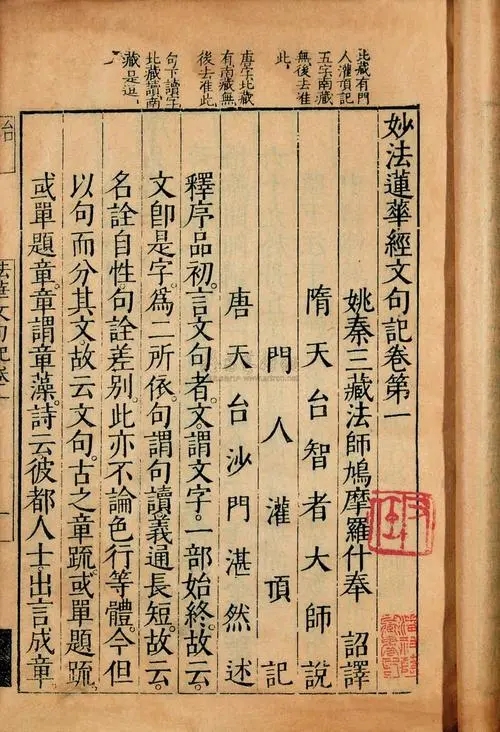 北藏有門
人灌頂記
五字南藏
無後去准
此
唐字北藏
有南藏無
後去准此
句下讀字
北藏讀南
藏是逗
妙法蓮華經文句記卷第一
姚秦三藏法師鳩摩羅什奉 詔譯
隋天台智者大師說
門人灌頂記
唐天台沙門湛然述
釋序品初。言文句者。文謂文字。一部始終。故云。
文卽是字。爲二所依。句謂句讀。義通長短。故云。
名詮自性。句詮差別。此亦不論色行等體。今但
以句而分其文。故云文句。古之章䟽。或單題䟽。
或單題章。章謂章藻。詩云。彼都人士。出言成章
法華文句記卷一